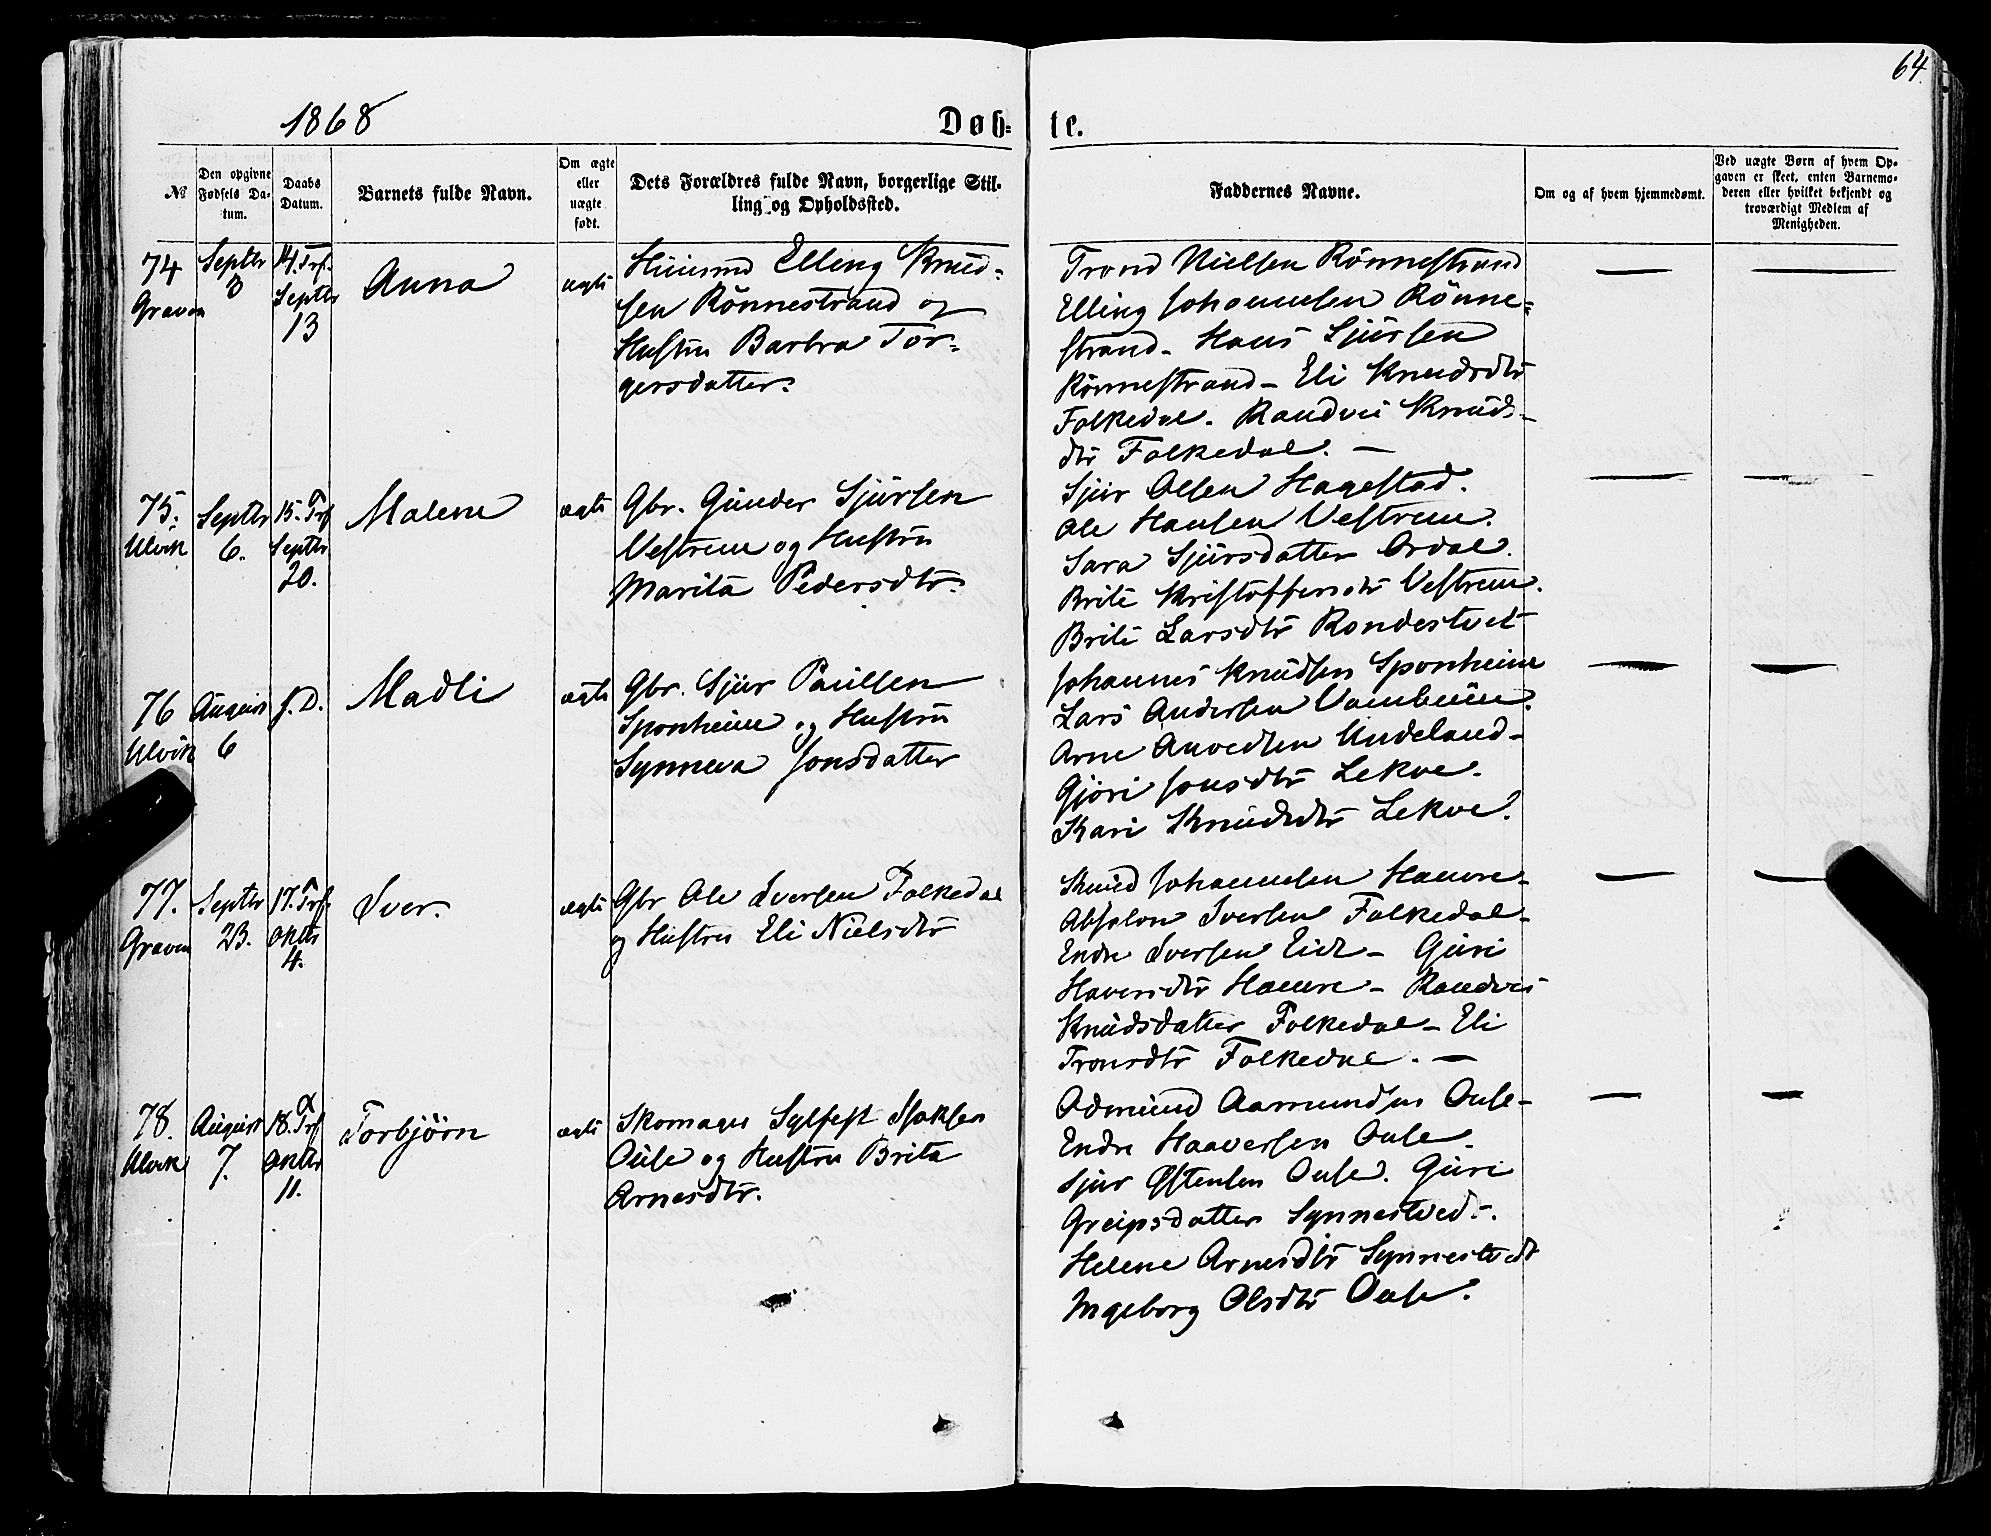 64
1868
Døb-
te.
№
Den opgivne Fødsels Da-tum.
Daabs Datum.
Barnets fulde Navn.
Om ægte eller uægte født.
Dets Forældres fulde Navn, borgerlige Stil-
ling og Opholdssted.
Faddernes Navne.
Om og af hvem hjemmedøbt.
Ved uægte Børn af hvem Op-
gaven er skeet, enten Barnemo-
deren eller hvilket bekjendt og
troværdigt Medlem af
Menigheden.
74 Graven
Septbr 3
14. Trf. Septbr 13
Anna
ægte
Huusmd Elling Knud-
sen Rönnestrand og
Hustru Barbra Tor-
gersdatter.
Trond Nielsen Rönnestrand
Elling Johannesen Rönne-
strand. Hans Sjursen
Rönnestrand - Eli Knudsdtr
Folkedal. Randvei Knuds-
dtr Folkedal. —
— —
75. Ulvik
Septbr 6.
15. Trf Septbr 20.
Malene
ægte
Gbr. Gunder Sjursen
Vestrem og Hustru
Marita Pedersdtr.
Sjur Olsen Hagestad.
Ole Hansen Vestrem.
Sara Sjursdatter Ordal.
Brite Kristoffersdtr Vestrem.
Brite Larsdtr Rondestvet
— —
76 Ulvik
August 6
J. D.
Madli
ægte
Gbr. Sjur Paulsen
Sponheim og Hustru
Synneva Jonsdatter
Johannes Knudsen Sponheim
Lars Andersen Vambheim.
Arne Anvedsen Undeland -
Gjöri Jonsdtr Lekve.
Kari Knudsdtr Lekve.
— —
77. Graven
Septbr 23.
17. Trf. Oktbr 4.
Iver.
ægte
Gbr Ole Iversen Folkedal
og Hustru Eli Nielsdtr
Knud Johannesen Hamre -
Absalon Iversen Folkedal -
Endre Iversen Eide - Guri
Haversdtr Hamre - Randvei
Knudsdatter Folkedal - Eli
Tronsdtr Folkedal. —
— —
78. Ulvik
August 7.
18. Trf Oktbr 11.
Torbjörn
ægte
Skomager Sylfest Isaksen
Ouse og Hustru Brita
Arnesdtr.
Odmund Aamundsen Ouse -
Endre Haaversen Ouse.
Sjur Østensen Ouse. Guri
Greipsdatter Synnestved -.
Helene Arnesdtr Synnestvedt
Ingeborg Olsdtr Ouse.
— —